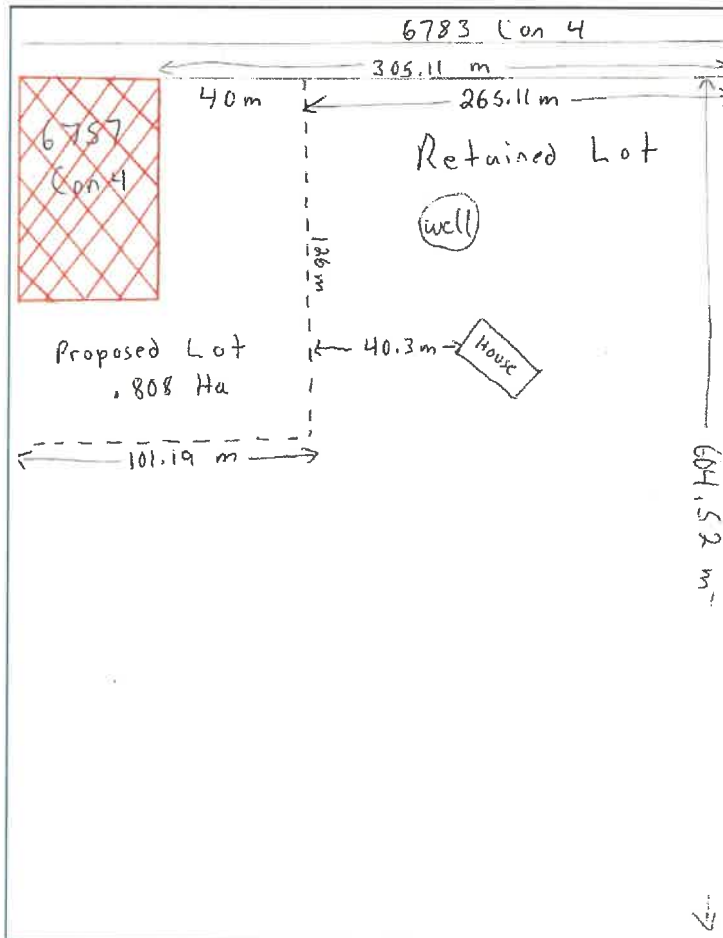 6783 Con 4
305.11 m
40m
265.11m
6787
Con 4
Retained Lot
well
126 m
Proposed Lot
.808 Ha
40.3m
House
101.19 m
604.52 m